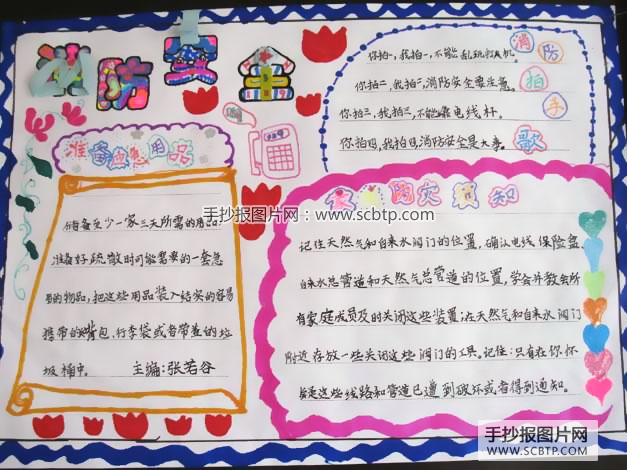 消防安全
你拍一,我拍一,不能乱玩打火机
你拍二,我拍二,消防安全要注意。
你拍三,我拍三,不能靠电线杆。
你拍四,我拍四,消防安全是大事。
消防拍手歌
准备应急用品
储备至少一家三天所需的用品.
准备好疏散时可能需要的一套急
用的物品,把这些用品装入结实的容易
携带的背包,行李袋或者带盖的垃
圾桶中。 主编:张若谷
家庭防灾须知
记住天然气和自来水阀门的位置,确认电线保险盒、
自来水总管道和天然气总管道的位置,学会并教会所
有家庭成员及时关闭这些装置;在天然气和自来水阀门
附近存放一些关闭这些阀门的工具。记住:只有在你怀
疑这些线路和管道已遭到破坏或者得到通知。
手抄报图片网:www.scbtp.com
手抄报图片网
WWW.SCBTP.COM